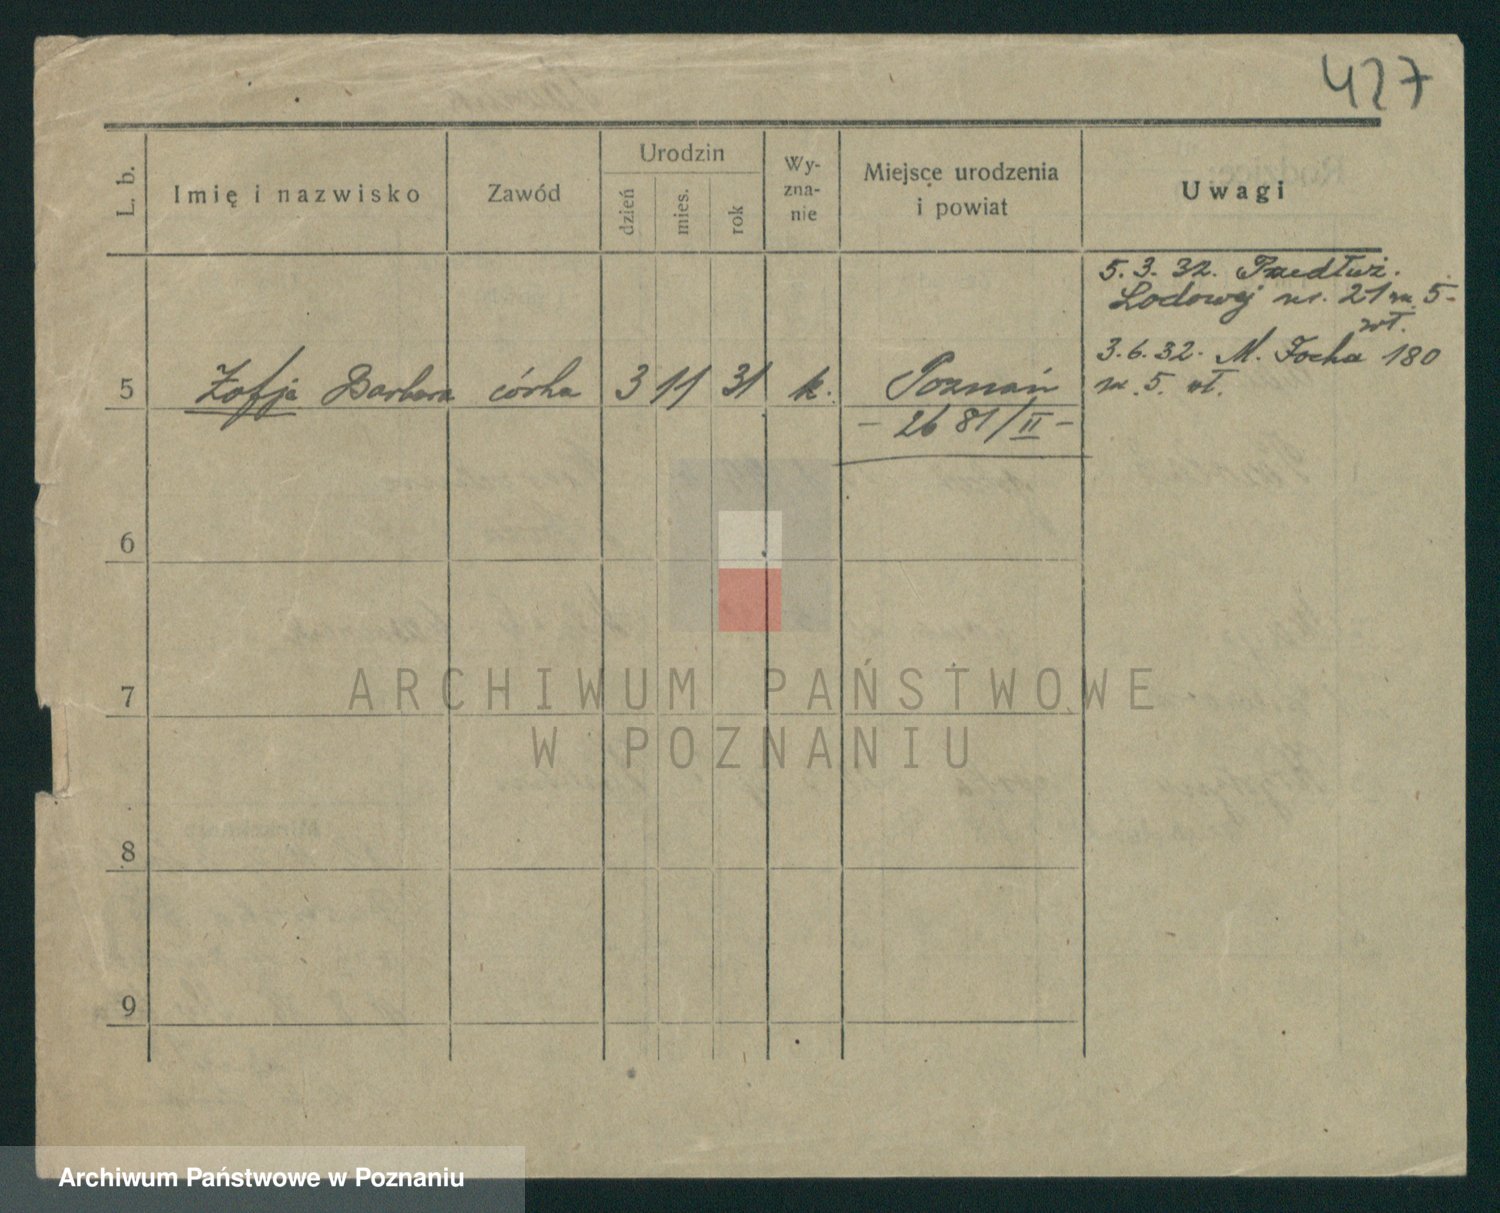 427
L. b.
Imię i nazwisko
Zawód
Urodzin
dzień
mies.
rok
Wy-
zna-
nie
Miejsce urodzenia
i powiat
Uwagi
5. 3. 32.
Lodowej nr. 21 m. 5.
wł.
3. 6. 32. M. Focha 180
m. 5. wł.
5 Zofja Barbara córka 3 11 31 k. Poznań
- 2681/II -
6
7
8
9
ARCHIWUM PAŃSTWOWE
W POZNANIU
Archiwum Państwowe w Poznaniu